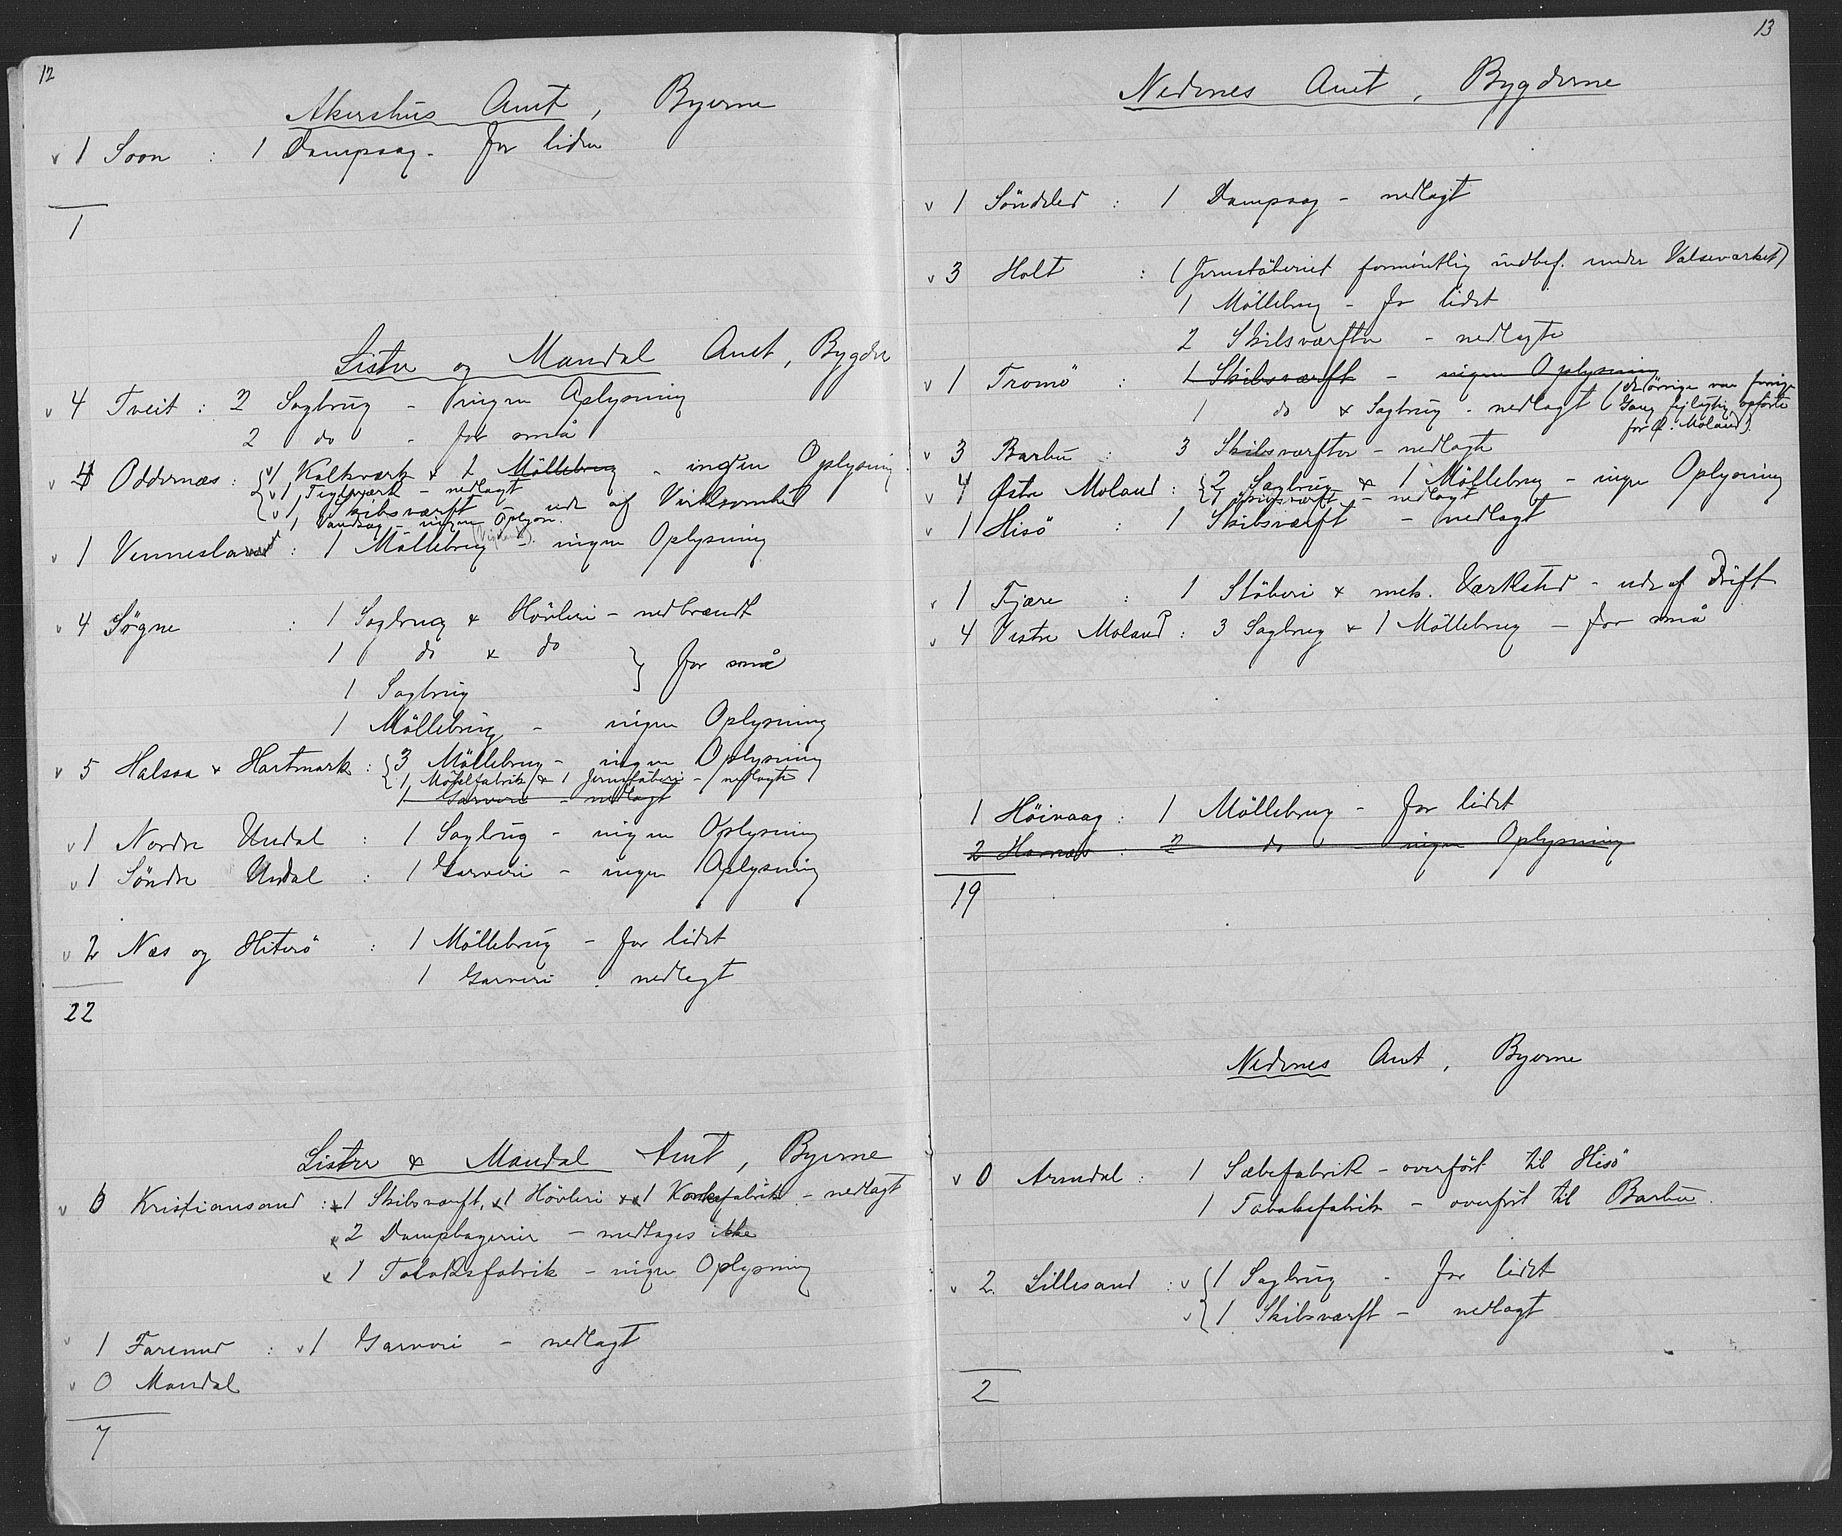 12
Akershus Amt, Byerne
v 1 Soon : 1 Dampsag - for liden
1
Lister og Mandal Amt, Bygder
v 4 Tveit : 2 Sagbrug - ingen Oplysning
2 do - for små
v 4 Oddernæs : v 1 Kalkværk & 2 Möllebrug - ingen Oplysning
v 1 Teglværk - nedlagt
v 1 Skibsværft - ude af Virksomhed
1 Vandsag - ingen Oplysn.
v 1 Vennesland : 1 Möllebrug - ingen Oplysning
v 4 Søgne : 1 Sagbrug & Hövleri - nedbrændt
1 do & do } for små
1 Sagbrug
1 Möllebrug - ingen Oplysning
v 5 Halsaa & Hartmark : 3 Möllebrug - ingen Oplysning
1 & 1 Jernstöberi - nedlagte
1 Garveri - nedlagt
v 1 Nordre Undal : 1 Sagbrug - ingen Oplysning
v 1 Söndre Undal : 1 Garveri - ingen Oplysning
v 2 Næs og Hiterö : 1 Möllebrug - for lidet
1 Garveri - nedlagt
22
Lister & Mandal Amt, Byerne
v 6 Kristiansand : 1 Skibsværft, 1 Hövleri & 1 fabrik - nedlagt
2 Dampbagerier - medtages ikke
x 1 Tobaksfabrik - ingen Oplysning
v 1 Farsund : v 1 Garveri - nedlagt
v 0 Mandal
7
13
Nedenes Amt, Bygderne
v 1 Söndeled : 1 Dampsag - nedlagt
v 3 Holt : (Jernstöberiet formentlig indbef. under Valseværket)
1 Möllebrug - for lidet
2 Skibsværfter - nedlagte
v 1 Tromö : 1 Skibsværft - ingen Oplysning
1 do & Sagbrug - nedlagt (de övrige var forrige
Gang fejlagtig opførte
for Ø. Moland)
v 3 Barbu : 3 Skibsværfter - nedlagte
v 4 Østre Moland : 2 Sagbrug & 1 Möllebrug - ingen Oplysning
1 Skibsværft - nedlagt
v 1 Hisö : 1 Skibsværft - nedlagt
v 1 Fjære : 1 Stöberi & mek. Værksted - ude af Drift
v 4 Vestre Moland : 3 Sagbrug & 1 Möllebrug - for små
1 Höivaag : 1 Möllebrug - for lidet
2 : 2 do ingen Oplysning
19
Nedenes Amt, Byerne
v 0 Arendal : 1 Sæbefabrik - overfört til Hisö
1 Tobaksfabrik - overfört til Barbu.
v 2 Lillesand : v 1 Sagbrug - for lidet
v 1 Skibsværft - nedlagt
2